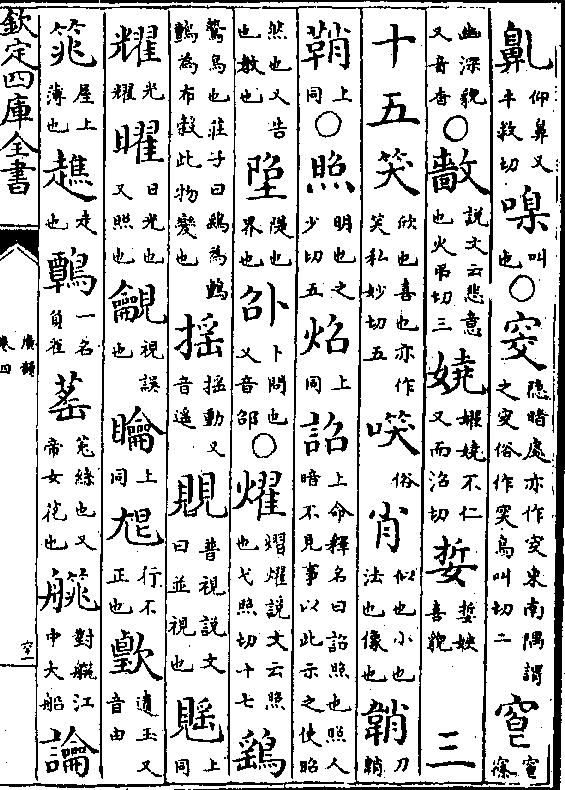 鼿仰鼻又牛救切嘄叫也○窔隠暗處亦作穾東南隅謂之穾俗作𥥆烏叫切二窅窅窱
幽深貌又音杳○㰾說文云悲意也火弔切三嬈嬥嬈不仁又而沼切娎娎妜喜貌
三十五笑欣也喜也亦作笑私妙切五㗛俗肖似也小也法也像也韒刀鞘
鞘上同○照明也之少切五炤上同詔上命釋名曰詔照也照人暗不見事以此示之使昭
然也又告也教也垔隄也界也卲卜問也又音邵○燿熠燿說文云照也弋照切十七鷂
鷙鳥也莊子曰鷂為鸇鸇為布穀此物變也揺揺動又音遥覞普視說文曰並視也䁘上同
耀光耀曜日光也又照也龥視誤也䁘上同尡行不正也歏遺玉又音由
筄屋上薄也趭走也鷣一名負雀䔄菟絲也又帝女花也䑬對艒江中大船論
欽定四庫全書
廣韻
卷四